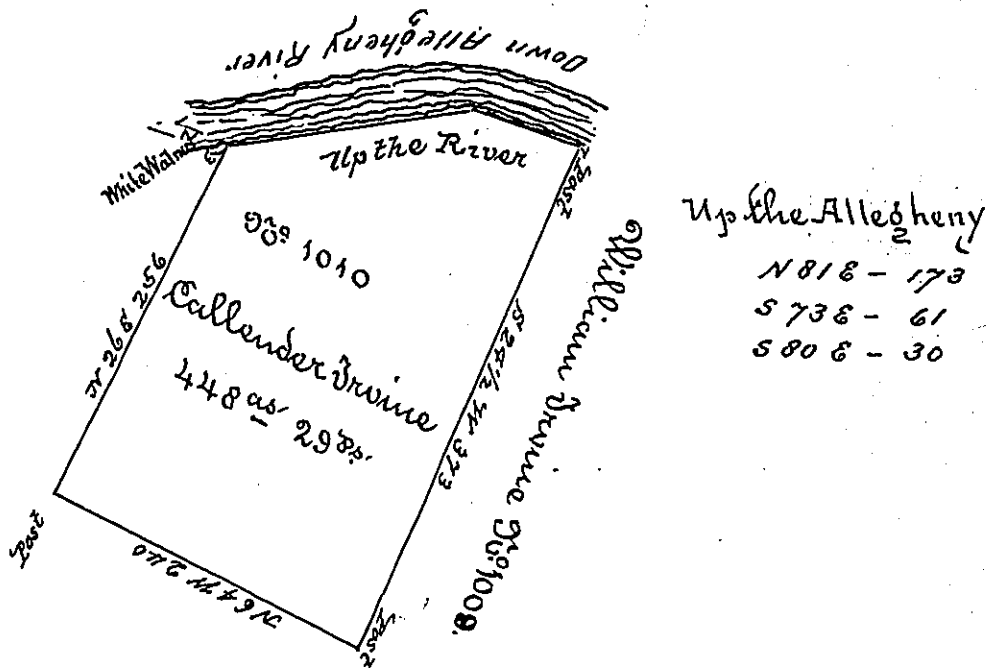 Down Allegheny River
Up the River
White Walnut
Post
No. 1010
Callender Irvine
448 as. 29 ps.
N 26 E 256
S 24 1/2 W 373
William Irvine No. 1009.
Post
N 64 W 240
Post
Up the Allegheny
N 81 E - 173
S 73 E - 61
S 80 E - 30